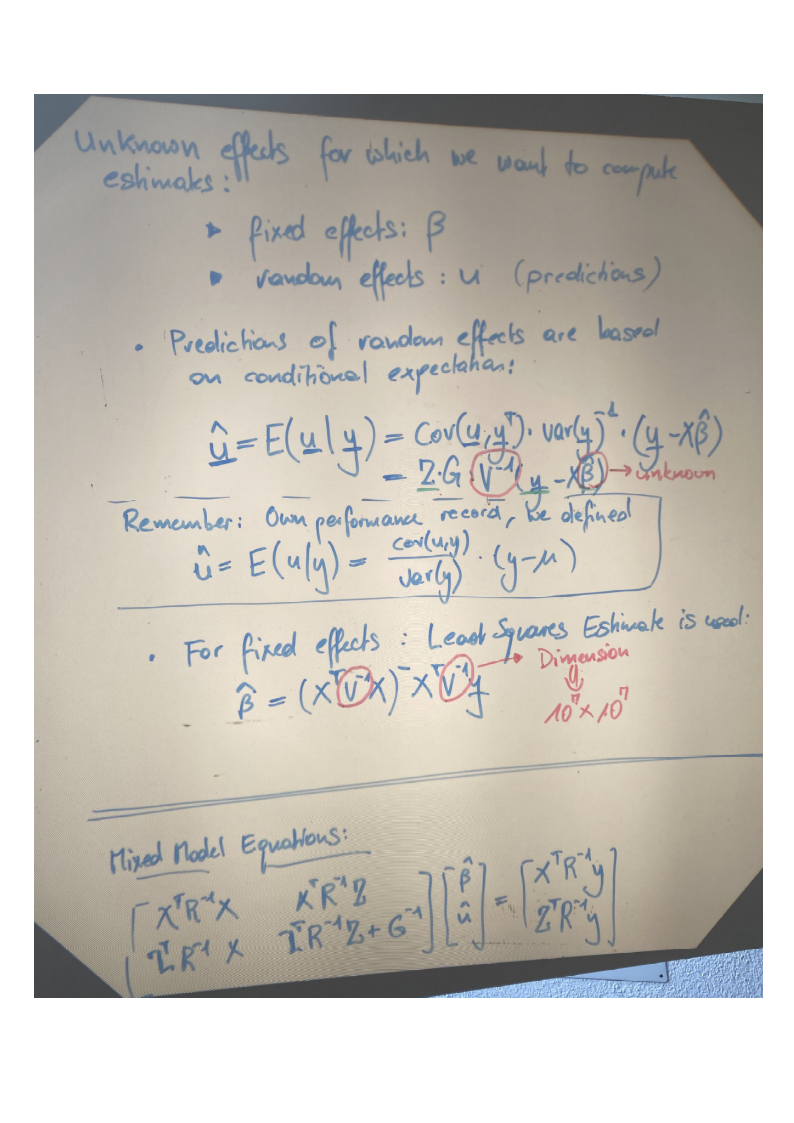 Unknown effects for which we want to compute
estimates:
▸ fixed effects: β
▸ random effects: u (predictions)
• Predictions of random effects are based
on conditional expectation:
û = E(u|y) = Cov(u,yᵀ)·var(y)⁻¹·(y-Xβ̂)
= Z·G·V⁻¹(y-Xβ̂) → unknown
Remember: Own performance record, we defined
û = E(u|y) = cov(u,y)/var(y) · (y-μ)
• For fixed effects: Least Squares Estimate is used:
β̂ = (XᵀV⁻¹X)⁻XᵀV⁻¹y → Dimension
10⁷×10⁷
Mixed Model Equations:
[XᵀR⁻¹X XᵀR⁻¹Z] [β̂] = [XᵀR⁻¹y]
[ZᵀR⁻¹X ZᵀR⁻¹Z+G⁻¹] [û] [ZᵀR⁻¹y]